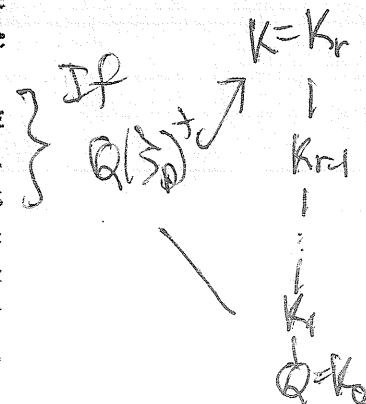 If
Q(ζp)⁺
K = Kr
Kr-1
⋮
K1
Q = K0